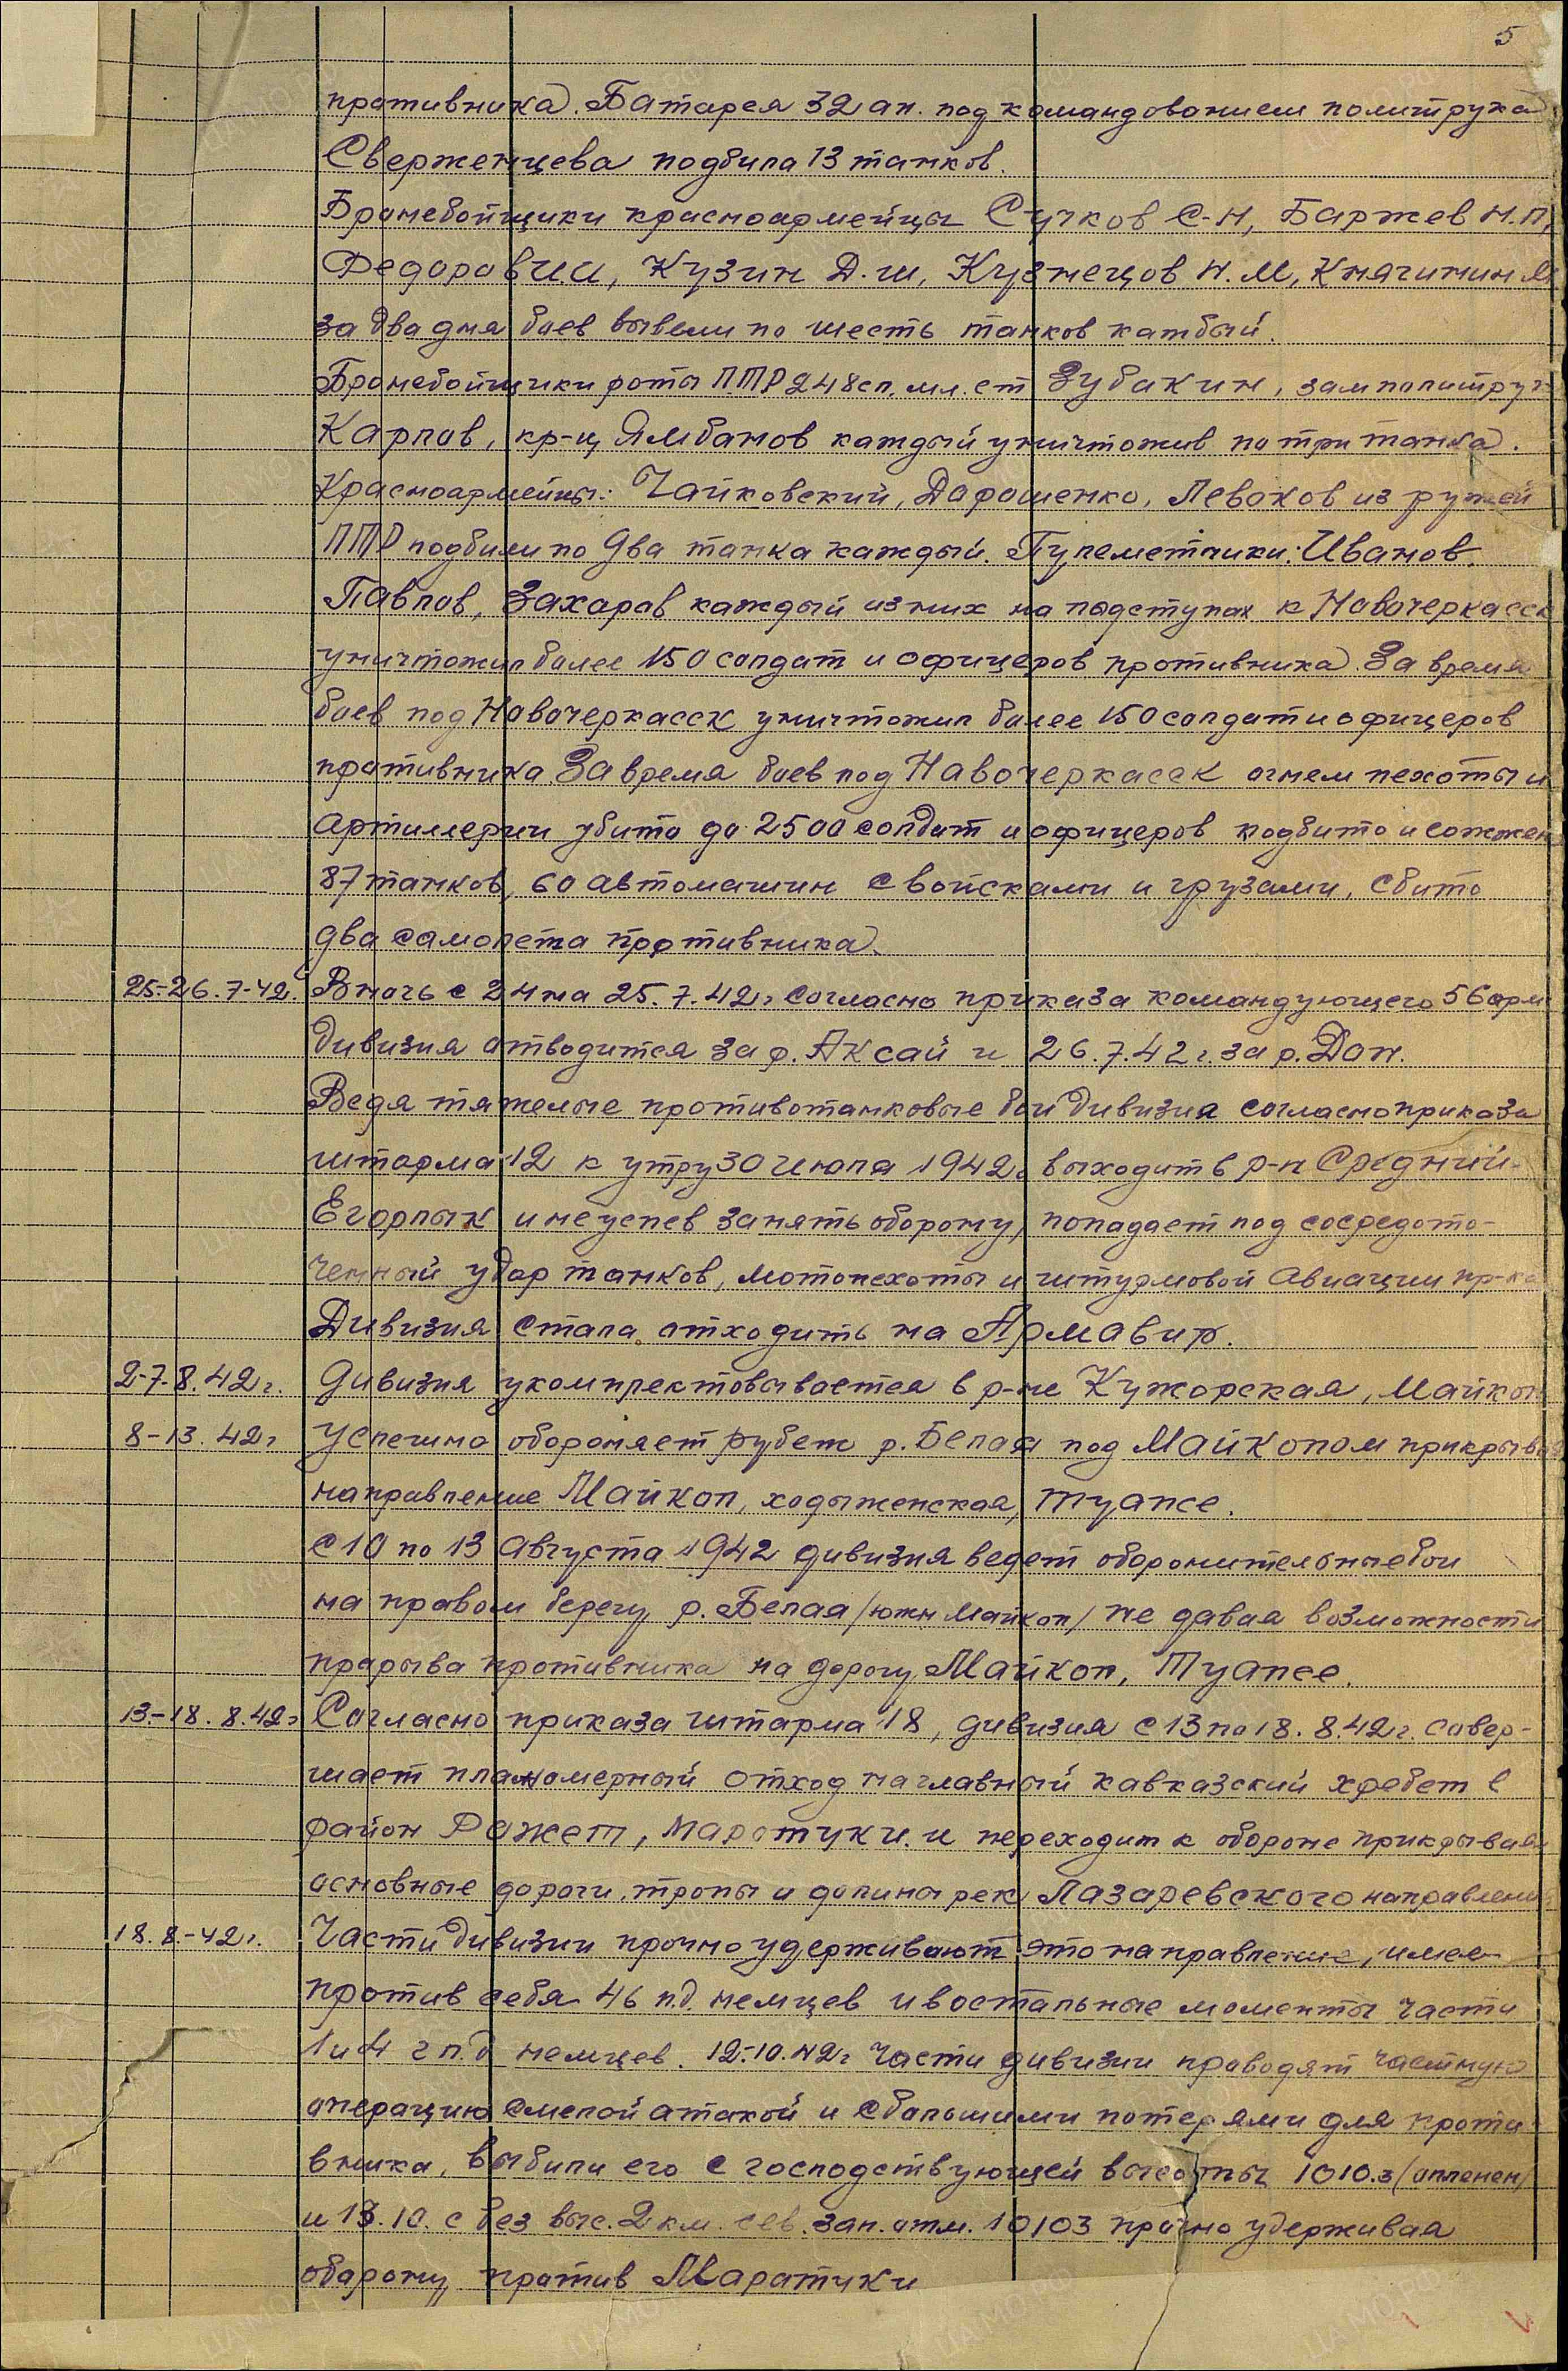 5
противника. Батарея 32 ап. под командованием политрука
Сверженцева подбила 13 танков.
Бронебойщики красноармейцы Сучков С-Н, Баржев Н.П,
Федоров И.И, Кузин Д.Ш, Кузнецов Н.М, Княгинин
за два дня боев вывели по шесть танков катбый.
Бронебойщики роты ПТР 248 сп. мл. ст Зубакин, замполитрук
Карпов, кр-ц Ямбанов каждый уничтожив по три танка.
Красноармейцы: Чайковский, Дорошенко, Левоков из ружей
ПТР подбили по два танка каждый. Пулеметчики: Иванов,
Павлов, Захаров каждый из них на подступах к Новочеркасск
уничтожил более 150 солдат и офицеров противника. За время
боев под Новочеркасск уничтожил более 150 солдат и офицеров
противника. За время боев под Новочеркасск огнем пехоты и
артиллерии убито до 2500 солдат и офицеров подбито и сожжен
87 танков, 60 автомашин с войсками и грузами, сбито
два самолета противника.
25-26.7-42г. В ночь с 24 на 25.7.42г согласно приказа командующего 56 арм
дивизия отводится за р. Аксай и 26.7.42г. за р. Дон.
Ведя тяжелые противотанковые бои дивизия согласно приказа
штарма 12 к утру 30 июля 1942г выходит в р-н Средний-
Егорлык и не успев занять оборону, попадает под сосредото-
ченный удар танков, мотопехоты и штурмовой авиации пр-ка
Дивизия стала отходить на Армавир.
2-7.8.42г. Дивизия укомплектовывается в р-не Кужорская, Майкоп
8-13.42г Успешно обороняет рубеж р. Белая под Майкопом прикрывая
направление Майкоп, ходыженская, Туапсе.
С 10 по 13 августа 1942 дивизия ведет оборонительные бои
на правом берегу р. Белая /южн Майкоп/ не давая возможности
прорыва противника на дорогу Майкоп, Туапсе.
13-18.8.42г Согласно приказа штарма 18, дивизия с 13 по 18.8.42г. совер-
шает планомерный отход на главный кавказский хребет в
район Режет, Маротуки. и переходит к обороне прикрывая
основные дороги, тропы и долины рек Лазаревского направлени
18.8.-42г. Части дивизии прочно удерживают это направление, имея
против себя 46 п.д. немцев и востальные моменты части
1 и 4 гп.д немцев. 12.10.42г части дивизии проводят частную
операцию смелой атакой и с большими потерями для проти-
вника, выбили его с господствующей высоты 1010.3 /оплепен/
и 13.10. с без выс. 2 км. сев. зап. отм. 10103 прочно удерживая
оборону против Маратуки